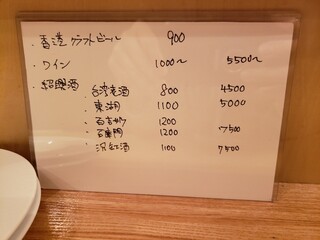 ・香港クラフトビール 900
・ワイン 1000〜 5500〜
・紹興酒
台湾老酒 800 4500
東湖 1100 5000
1200
1200 7500
紅酒 1100 7500